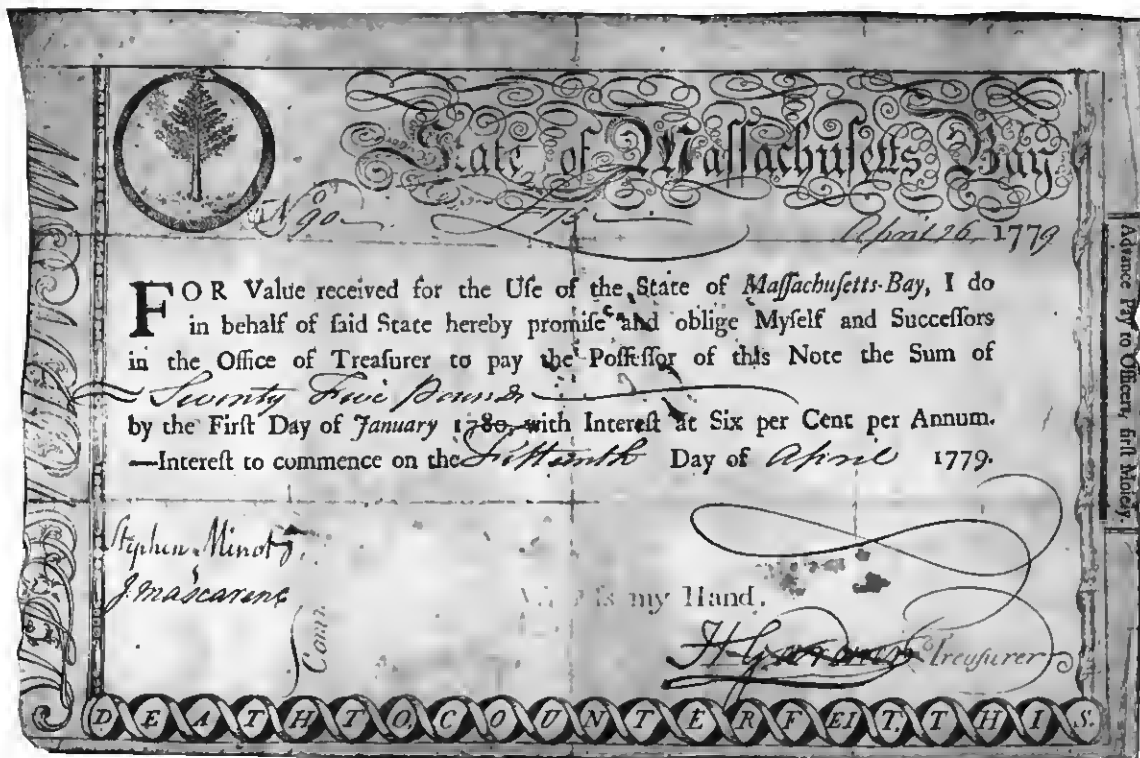 State of Maſſachuſetts Bay
No 90 £75 April 26, 1779
FOR Value received for the Uſe of the State of Maſſachuſetts-Bay, I do
in behalf of ſaid State hereby promiſe and oblige Myſelf and Succeſſors
in the Office of Treaſurer to pay the Poſſeſſor of this Note the Sum of
Seventy Five Pounds
by the Firſt Day of January 1780, with Intereſt at Six per Cent per Annum.
—Intereſt to commence on the Fifteenth Day of April 1779.
Stephen Minot
J. Mascarene
Com.
Witneſs my Hand,
H Gardner Treaſurer
DEATH TO COUNTERFEIT THIS.
Advance Pay to Officers, firſt Moiety.